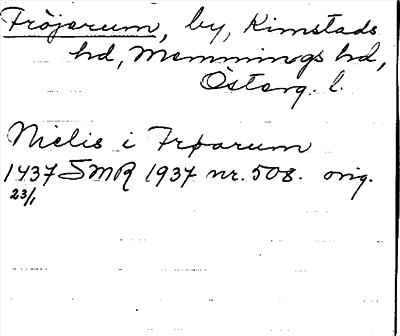 Fröjarum, by, Kimstads
hd, Memmings hd,
Österg. l.
Nielis i Frøarum
1437 SMR 1937 nr. 508. orig.
23/1